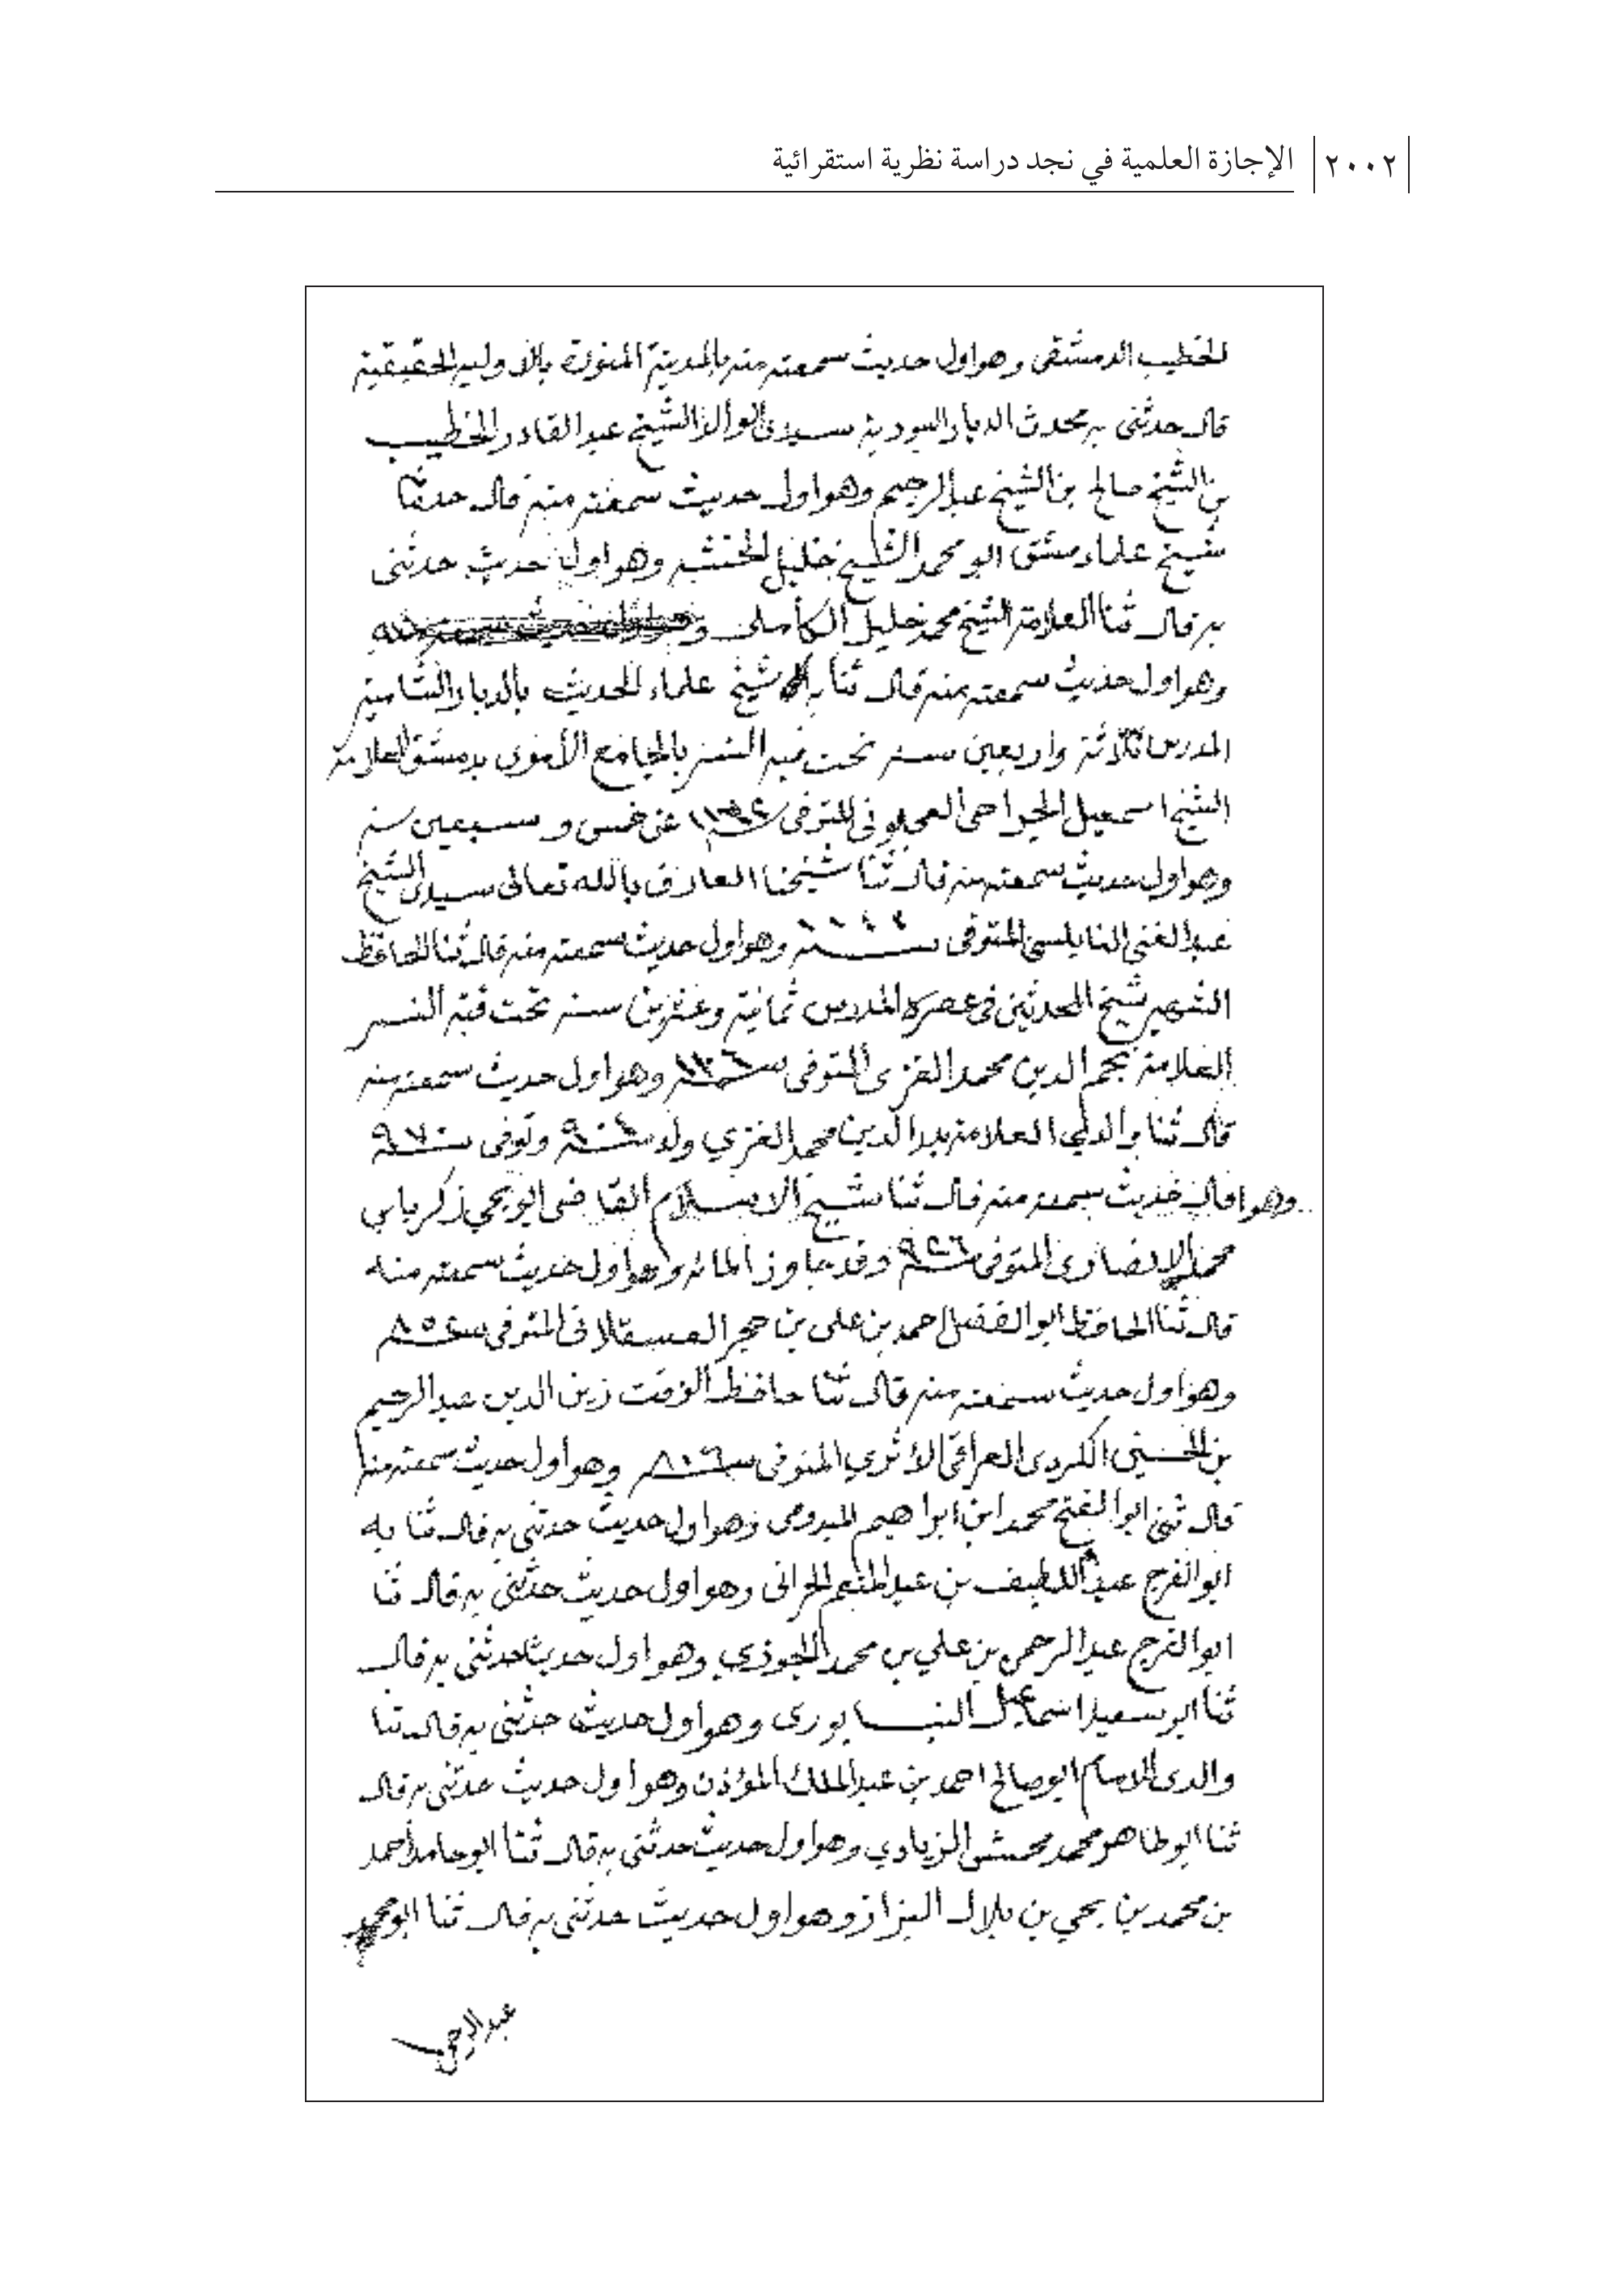 ٢٠٠٢ الإجازة العلمية في نجد دراسة نظرية استقرائية
الخطيب الدمشقى وهو اول حديث سمعته منه بالمدينة المنورة بالاوليه الحقيقية
قال حدثنى به محدث الديار السورية سيدى الوالد الشيخ عبد القادر الخطيب
بن الشيخ صالح بن الشيخ عبد الرحيم وهو اول حديث سمعته منه قال حدثنا
شيخ علماء دمشق ابو محمد الشيخ خليل الخشه وهو اول حديث حدثنى
به قال ثنا العلامة الشيخ محمد خليل الكأملى
وهو اول حديث سمعته منه قال ثنا به شيخ علماء الحديث بالديار الشامية
المدرس ثلاثة واربعين سنة تحت قبه النسر بالجامع الأموى بدمشق العلامة
الشيخ اسمعيل الجراحى العجلونى المتوفى عن خمس وسبعين سنه
وهو اول حديث سمعته منه قال ثنا شيخنا العارف بالله تعالى سيدى الشيخ
عبد الغنى النابلسى المتوفى وهو اول حديث سمعته منه قال ثنا الحافظ
الشهير شيخ المحدثين فى عصره المدرس ثمانية وعشرين سنه تحت قبه النسر
العلامة نجم الدين محمد الغزى المتوفى وهو اول حديث سمعته منه
قال ثنا والدي العلامة بدر الدين محمد الغزي ولد وتوفى
وهو حديث سمعته منه قال ثنا شيخ الاسلام القاضى ابو يحي زكريا بن
محمد الانصارى المتوفى سنة ٩٢٦ وقد جاوز المائه وهو اول حديث سمعته منه
قال ثنا الحافظ ابو الفضل احمد بن على بن حجر العسقلانى المتوفى
وهو اول حديث سمعته منه قال ثنا حافظ الوقت زين الدين عبد الرحيم
بن الحسين الكردى العراقى الاثري المتوفى سنة ٨٠٦ وهو اول حديث سمعته منه
قال ثنى ابو الفتح محمد ابن ابراهيم الميدومى وهو اول حديث حدثنى به قال ثنا به
ابو الفرج عبد اللطيف بن عبد المنعم الحرانى وهو اول حديث حدثنى به قال ثنا
ابو الفرج عبد الرحمن بن علي بن محمد الجوزي وهو اول حديث حدثنى به قال
ثنا ابو سعيد اسماعيل النيسابورى وهو اول حديث حدثنى به قال ثنا
والدى الامام ابو صالح احمد بن عبد الملك المؤذن وهو اول حديث حدثنى به قال
ثنا ابو طاهر محمد محمش الزيادي وهو اول حديث حدثنى به قال ثنا ابو حامد أحمد
بن محمد بن يحي بن بلال البزاز وهو اول حديث حدثنى به قال ثنا ابو محمد
عبد الرحمن